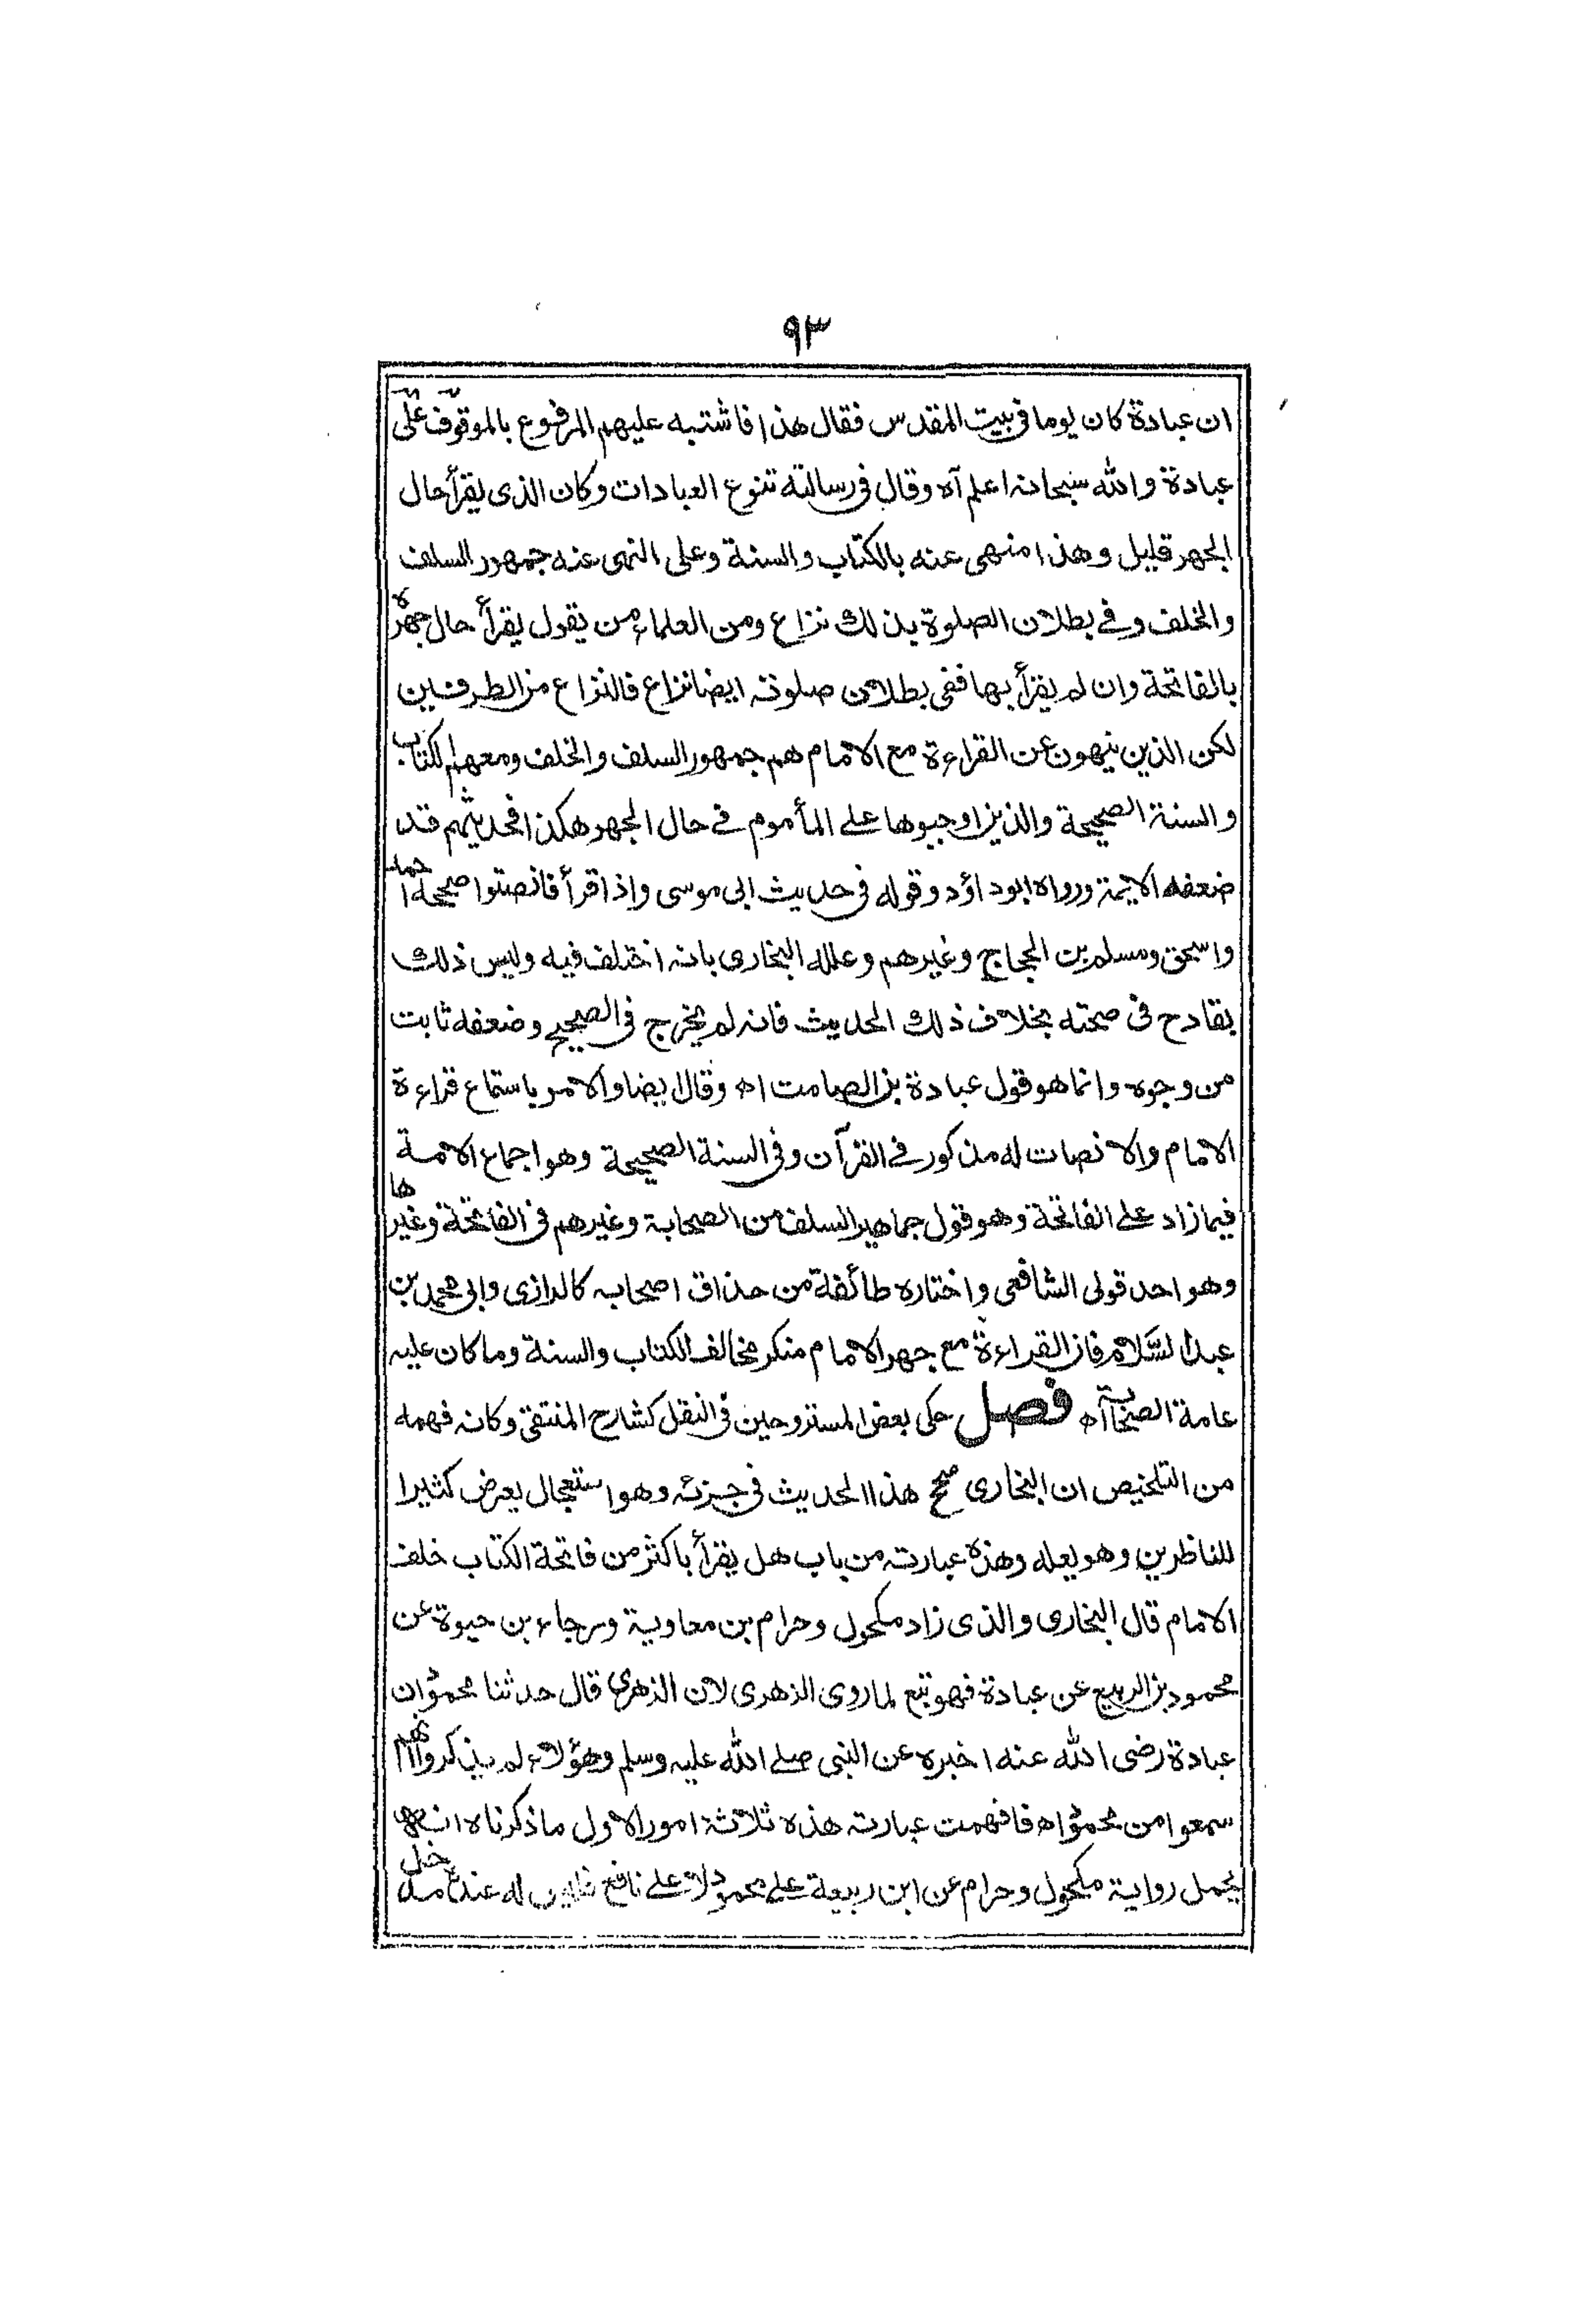 ٩٣
ان عبادة كان يوما فى بيت المقدس فقال هذا فاشتبه عليهم المرفوع بالموقوف على
عبادة والله سبحانه اعلم آه وقال فى رسالته تنوع العبادات وكان الذى يقرأ حال
الجهر قليل وهذا منهى عنه بالكتاب والسنة وعلى النهى عنه جمهور السلف
والخلف وفى بطلان الصلوة بذلك نزاع ومن العلماء من يقول يقرأ حال جهره
بالفاتحة وان لم يقرأ بها ففى بطلان صلوته ايضا نزاع فالنزاع من الطرفين
لكن الذين ينهون عن القراءة مع الامام هم جمهور السلف والخلف ومعهم الكتاب
والسنة الصحيحة والذين اوجبوها على المأموم فى حال الجهر هكذا فحديثهم قد
ضعفه الائمة ورواه ابوداؤد وقوله فى حديث ابى موسى واذا قرأ فانصتوا صححه احمد
واسحق ومسلم بن الحجاج وغيرهم وعلله البخارى بانه اختلف فيه وليس ذلك
بقادح فى صحته بخلاف ذلك الحديث فانه لم يخرج فى الصحيح وضعفه ثابت
من وجوه وانما هو قول عبادة بن الصامت اه وقال ايضا والامر باستماع قراءة
الامام والانصات له مذكور فى القرآن وفى السنة الصحيحة وهو اجماع الامة
فيما زاد على الفاتحة وهو قول جماهير السلف من الصحابة وغيرهم فى الفاتحة وغيرها
وهو احد قولى الشافعى واختاره طائفة من حذاق اصحابه كالرازى وابى محمد بن
عبد السلام فان القراءة مع جهر الامام منكر مخالف للكتاب والسنة وما كان عليه
عامة الصحابة آه فصل حكى بعض المستروحين فى النقل كشارح المنتقى وكانه فهمه
من التلخيص ان البخارى صحح هذا الحديث فى جزئه وهو استعجال يعرض كثيرا
للناظرين وهو يعله وهذه عبارته من باب هل يقرأ باكثر من فاتحة الكتاب خلف
الامام قال البخارى والذى زاد مكحول وحرام بن معاوية ورجاء بن حيوة عن
محمود بن الربيع عن عبادة فهو تبع لما روى الزهرى لان الزهرى قال حدثنا محمود ان
عبادة رضى الله عنه اخبره عن النبى صلى الله عليه وسلم وهؤلاء لم يذكروا انهم
سمعوا من محمود اه فافهمت عبارته هذه ثلاثة امور الاول ما ذكرناه انه
يحمل رواية مكحول وحرام عن ابن ربيعة على محمود لا على نافع فليس له عنده مدخل